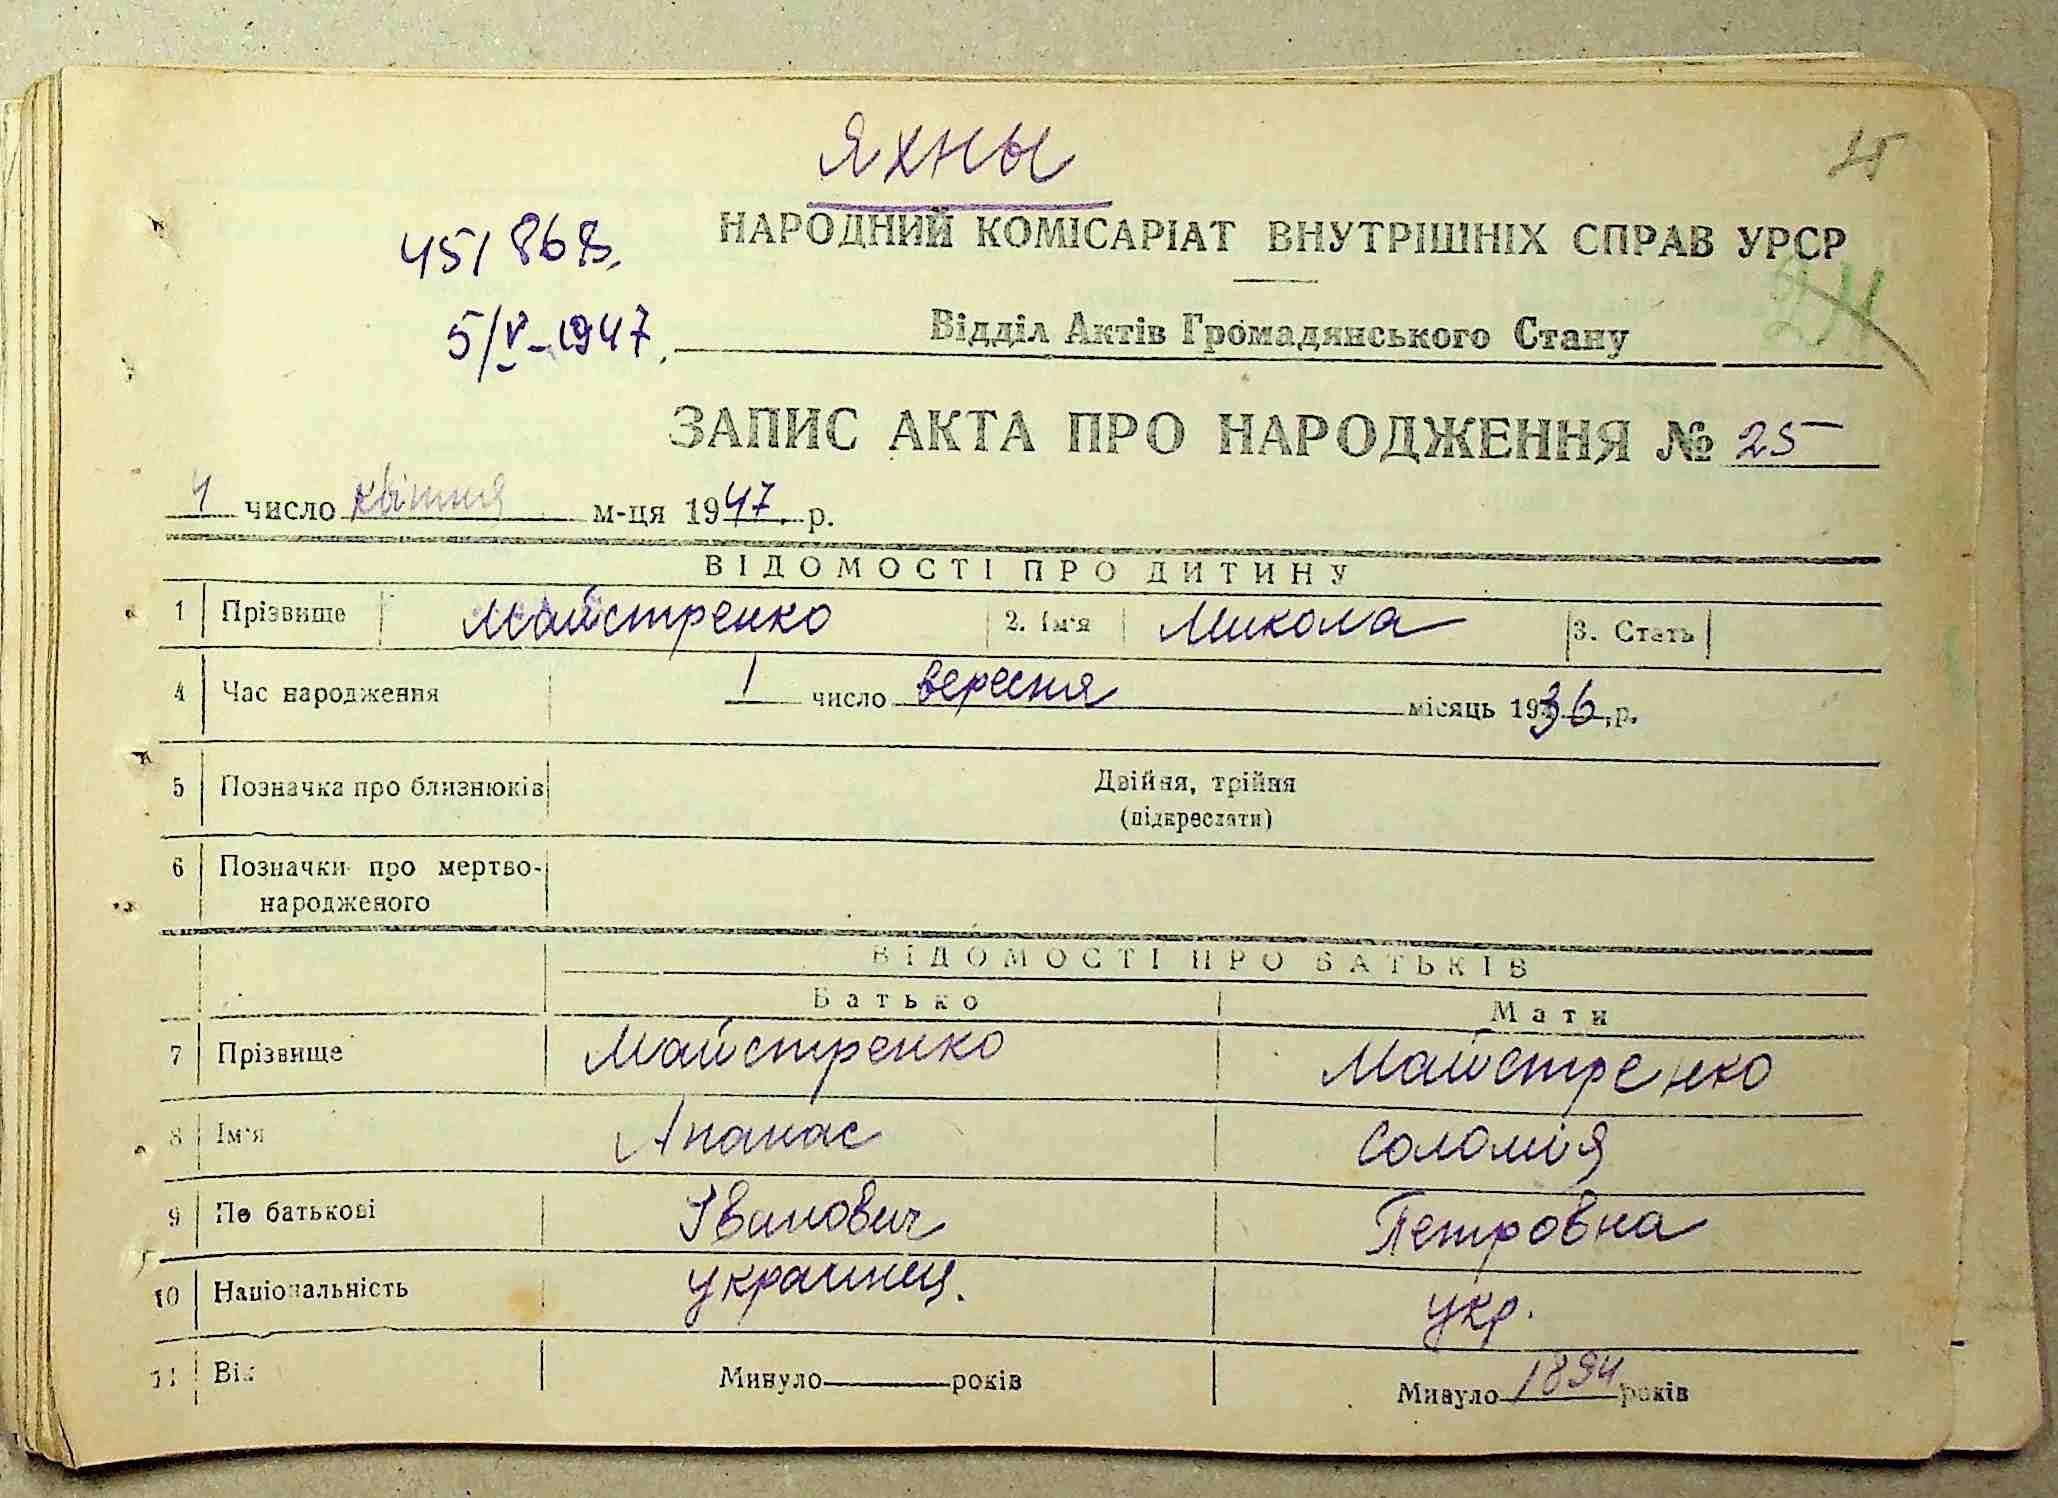 Яхны
25
45/868.
НАРОДНИЙ КОМІСАРІАТ ВНУТРІШНІХ СПРАВ УРСР
24
5/V-1947.
Відділ Актів Громадянського Стану
ЗАПИС АКТА ПРО НАРОДЖЕННЯ № 25
4 число квітня м-ця 1947. р.
ВІДОМОСТІ ПРО ДИТИНУ
1 Прізвище Майстренко 2. Ім'я Микола 3. Стать
4 Час народження 1 число вересня місяць 1936, р.
5 Позначка про близнюків Двійня, трійня
(підкреслати)
6 Позначки про мертво-
народженого
ВІДОМОСТІ ПРО БАТЬКІВ
Батько Мати
7 Прізвище Майстренко Майстренко
8 Ім'я Апанас Соломія
9 По батькові Іванович Петровна
10 Національність украинец. укр.
11 Вік Минуло років Минуло 1894 років